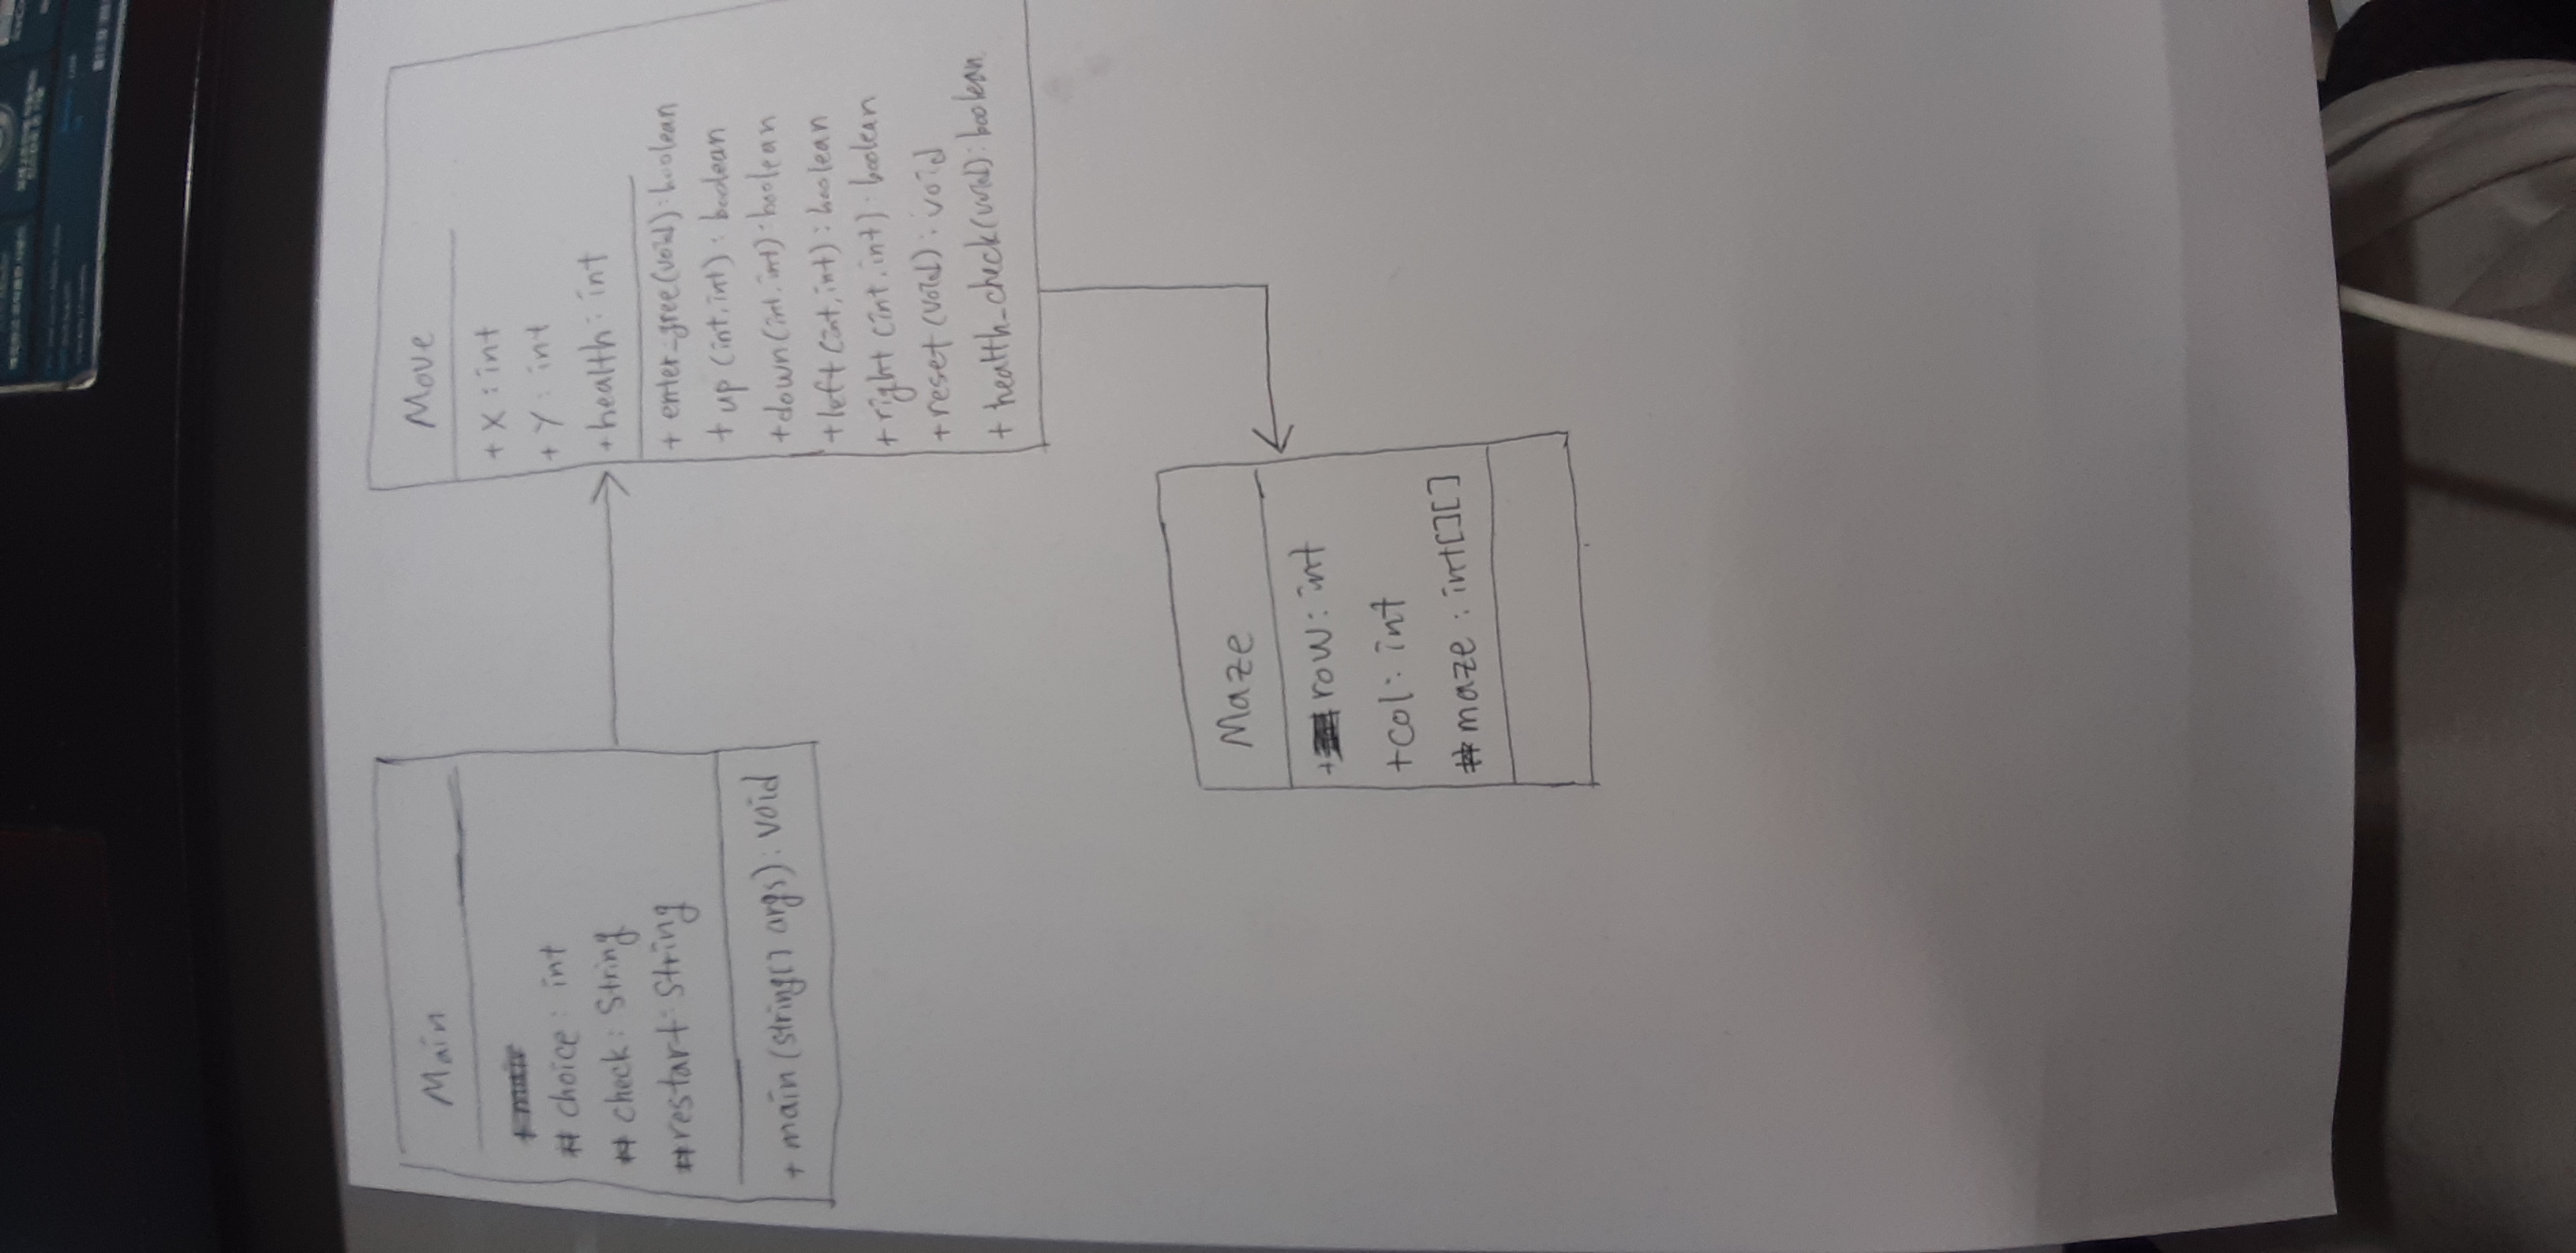 Main
# choice : int
# check : String
# restart : String
+ main (string[] args) : void
Move
+ X : int
+ Y : int
+ health : int
+ enter_gree(void) : boolean
+ up (int, int) : boolean
+ down (int, int) : boolean
+ left (int, int) : boolean
+ right (int, int) : boolean
+ reset (void) : void
+ health_check(void) : boolean
Maze
+ row : int
+ col : int
# maze : int[][]